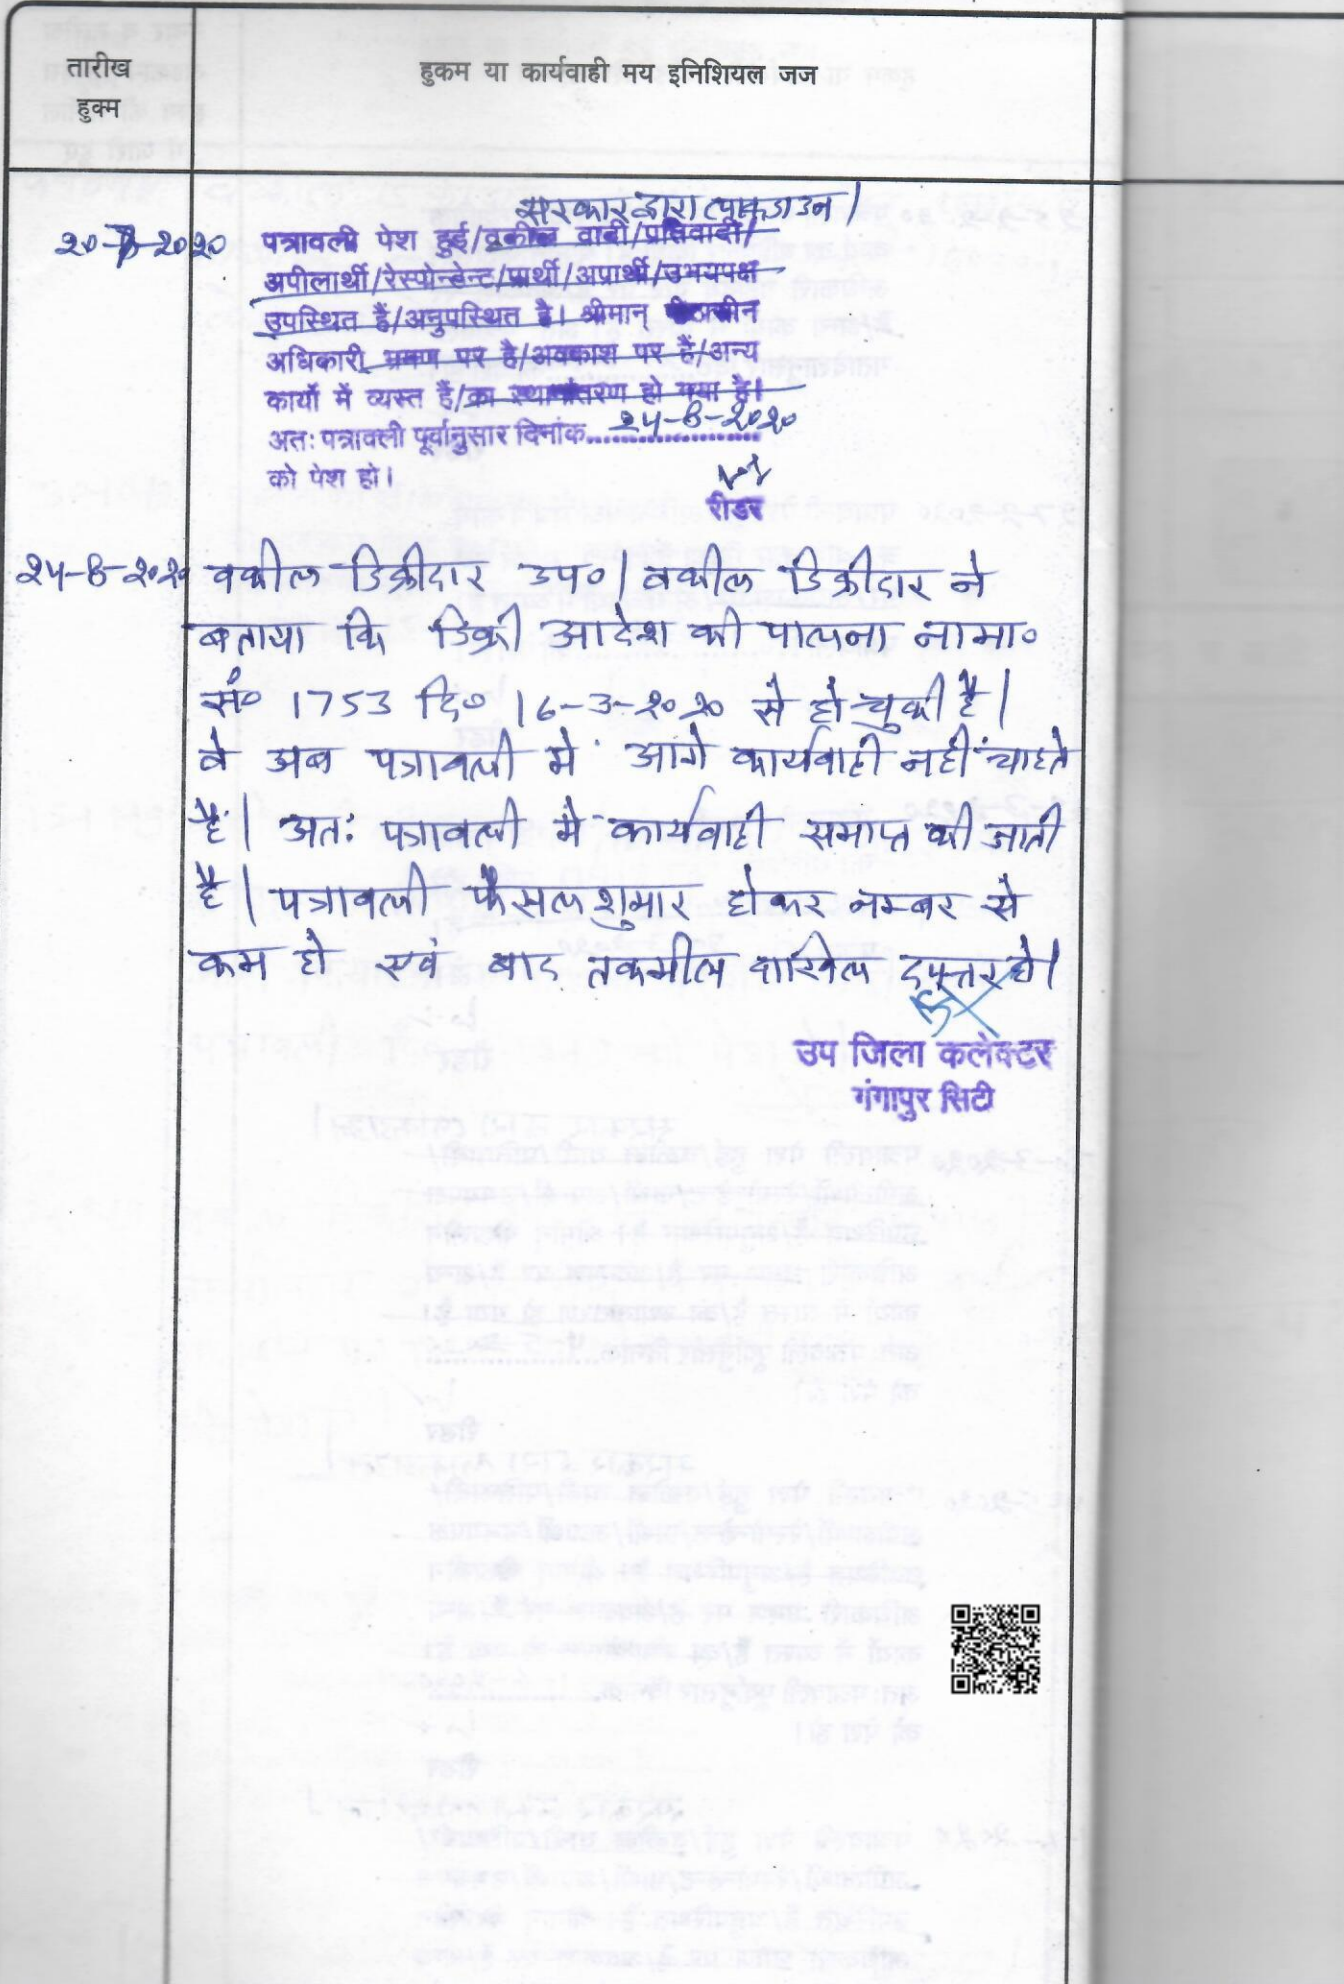 तारीख
हुक्म
हुकम या कार्यवाही मय इनिशियल जज
सरकार द्वारा लाकडाउन।
२०-७-२०२० पत्रावली पेश हुई/वकील वादी/प्रतिवादी/
अपीलार्थी/रेस्पोन्डेन्ट/प्रार्थी/अप्रार्थी/उभयपक्ष
उपस्थित हैं/अनुपस्थित है। श्रीमान पीठासीन
अधिकारी भ्रमण पर है/अवकाश पर है/अन्य
कार्यो में व्यस्त हैं/का स्थानांतरण हो गया है।
अतः पत्रावली पूर्वानुसार दिनांक 24-8-२०२०
को पेश हो।
रीडर
२4-8-२०२० वकील डिक्रीदार उप०। वकील डिक्रीदार ने
बताया कि डिक्री आदेश की पालना नामा०
सं० 1753 दि० 16-3-२०२० से हो चुकी है।
वे अब पत्रावली में आगे कार्यवाही नहीं चाहते
हैं। अतः पत्रावली में कार्यवाही समाप्त की जाती
है। पत्रावली फैसल शुमार होकर नम्बर से
कम हो एवं बाद तकमील दाखिल दफ्तर हो।
उप जिला कलेक्टर
गंगापुर सिटी